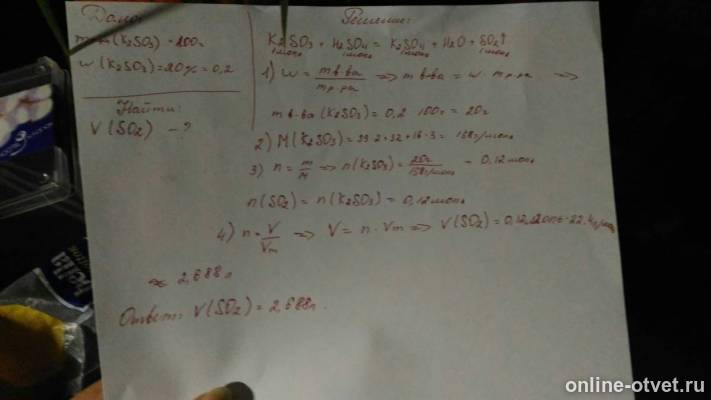 Дано:
m (K2SO3) = 100г
w (K2SO3) = 20% = 0,2
Найти:
V (SO2) - ?
Решение:
K2SO3 + H2SO4 = K2SO4 + H2O + SO2↑
1моль 1моль 1моль 1моль
1) w = m в-ва / m р-ра => m в-ва = w · m р-ра =>
m в-ва (K2SO3) = 0,2 · 100г = 20г
2) M (K2SO3) = 39·2+32+16·3 = 158г/моль
3) n = m/M => n (K2SO3) = 20г / 158г/моль = 0,12моль
n (SO2) = n (K2SO3) = 0,12моль
4) n = V/Vm => V = n · Vm => V (SO2) = 0,12моль · 22,4л/моль
≈ 2,688л
Ответ: V (SO2) = 2,688л.
online-otvet.ru